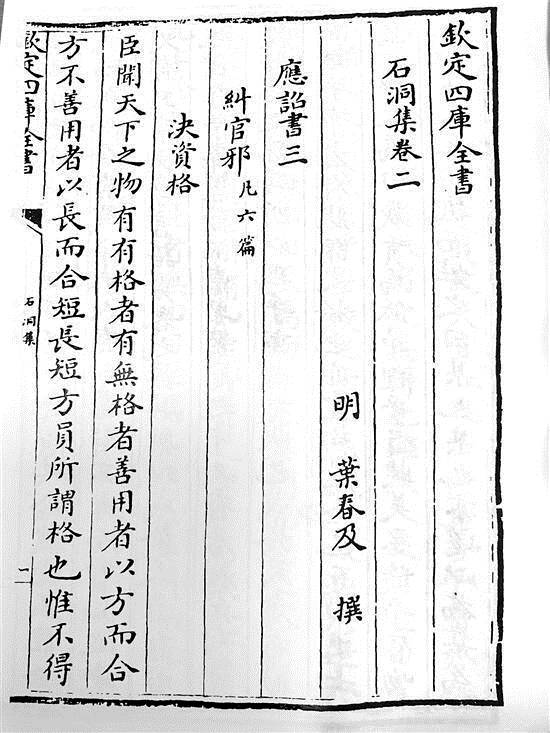 欽定四庫全書
石洞集卷二
明 葉春及 撰
應詔書三
糾官邪凡六篇
決資格
臣聞天下之物有有格者有無格者善用者以方而合
方不善用者以長而合短長短方員所謂格也惟不得
欽定四庫全書
石洞集
一